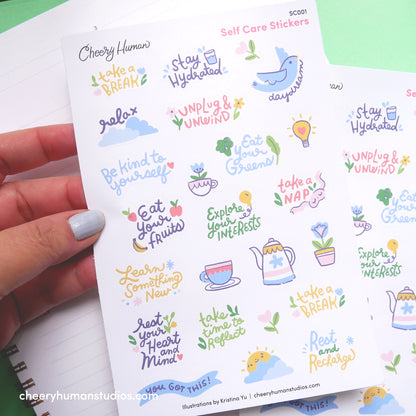 SC001
Cheery Human
Self Care Stickers
take a
BREAK
stay
Hydrated
daydream
relax
UNPLUG &
UNWIND
Be kind to
yourself
Eat
Your
Greens
Eat
Your
fRUITS
Explore
your
INTERESTS
take a
NAP
Learn
Something
New
rest
your
Heart
and
Mind
take
time to
Reflect
take a
BREAK
Rest
and
Recharge
YOU GOT THIS!
Illustrations by Kristina Yu | cheeryhumanstudios.com
stay
Hydrated
UNPLUG &
UNWIND
Eat
Your
Explore
your
INTERESTS
cheeryhumanstudios.com